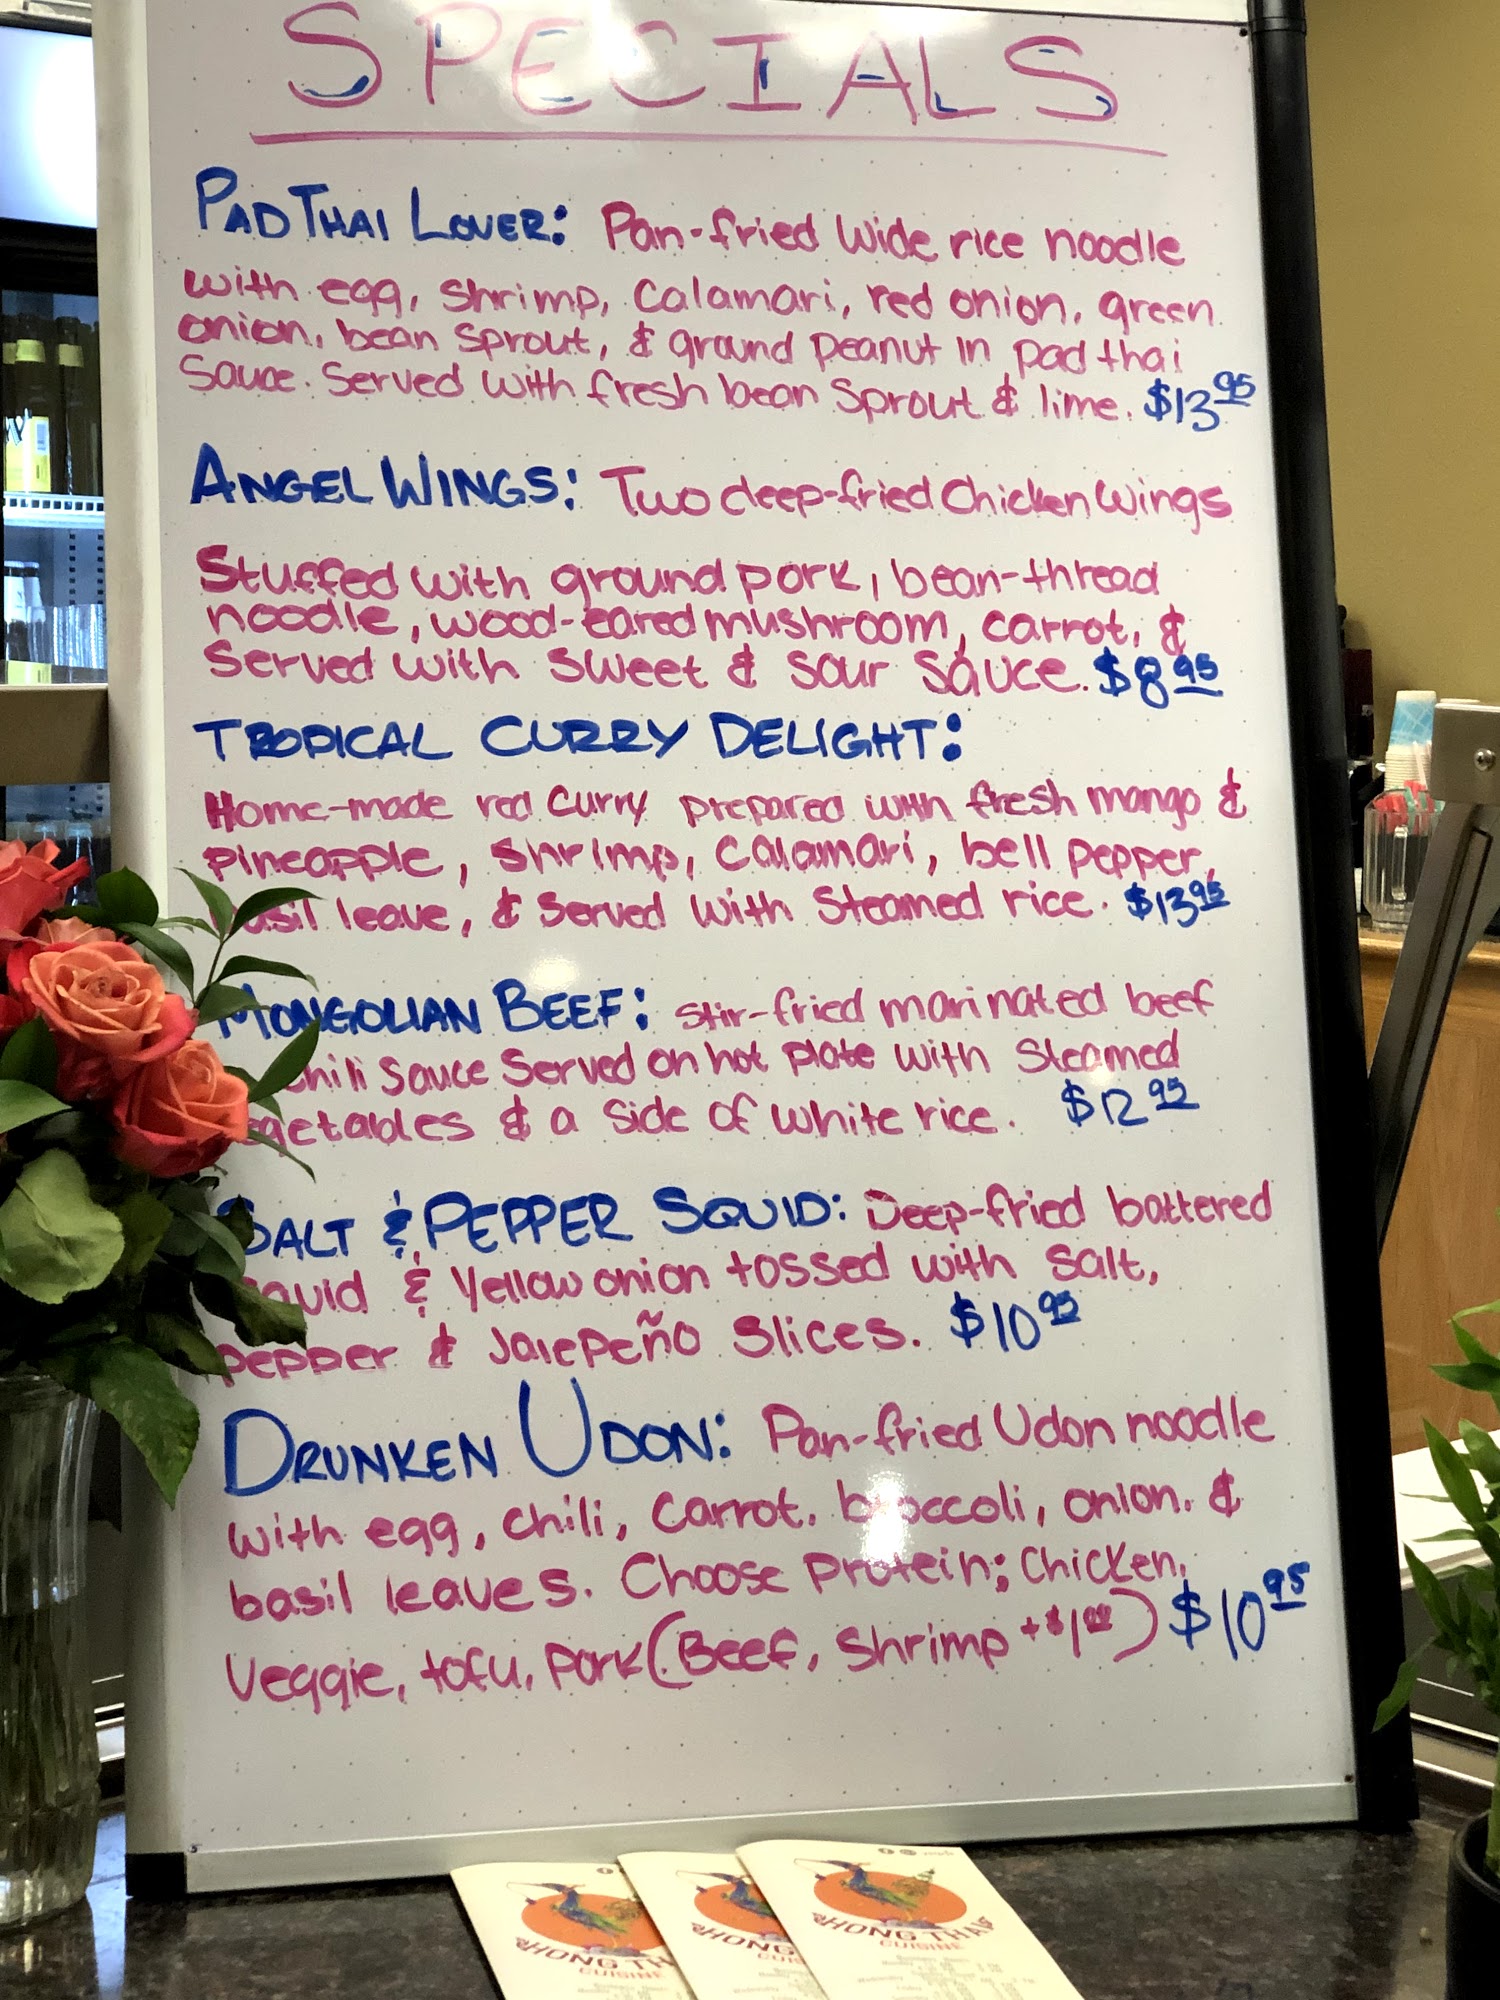 SPECIALS
PAD THAI LOVER: Pan-fried Wide rice noodle
with egg, Shrimp, Calamari, red onion, green
onion, bean Sprout, & ground peanut in pad thai
Sauce. Served with fresh bean Sprout & lime. $13.95
ANGEL WINGS: Two deep-fried Chicken Wings
Stuffed with ground pork, bean-thread
noodle, wood-eared mushroom, carrot, &
Served with Sweet & Sour Sauce. $8.95
TROPICAL CURRY DELIGHT:
Home-made red Curry prepared with fresh mango &
pineapple, Shrimp, Calamari, bell pepper,
basil leave, & Served with Steamed rice. $13.95
MONGOLIAN BEEF: Stir-fried marinated beef
chili Sauce Served on hot plate with Steamed
egetables & a Side of white rice. $12.95
SALT & PEPPER SQUID: Deep-fried battered
squid & Yellow onion tossed with Salt,
pepper & Jalepeño Slices. $10.95
DRUNKEN UDON: Pan-fried Udon noodle
with egg, Chili, Carrot, broccoli, onion, &
basil leaves. Choose Protein; Chicken,
Veggie, tofu, Pork (Beef, Shrimp +$1.00) $10.95
HONG TH
CUISINE
HONG
HONG THAI
CUISINE